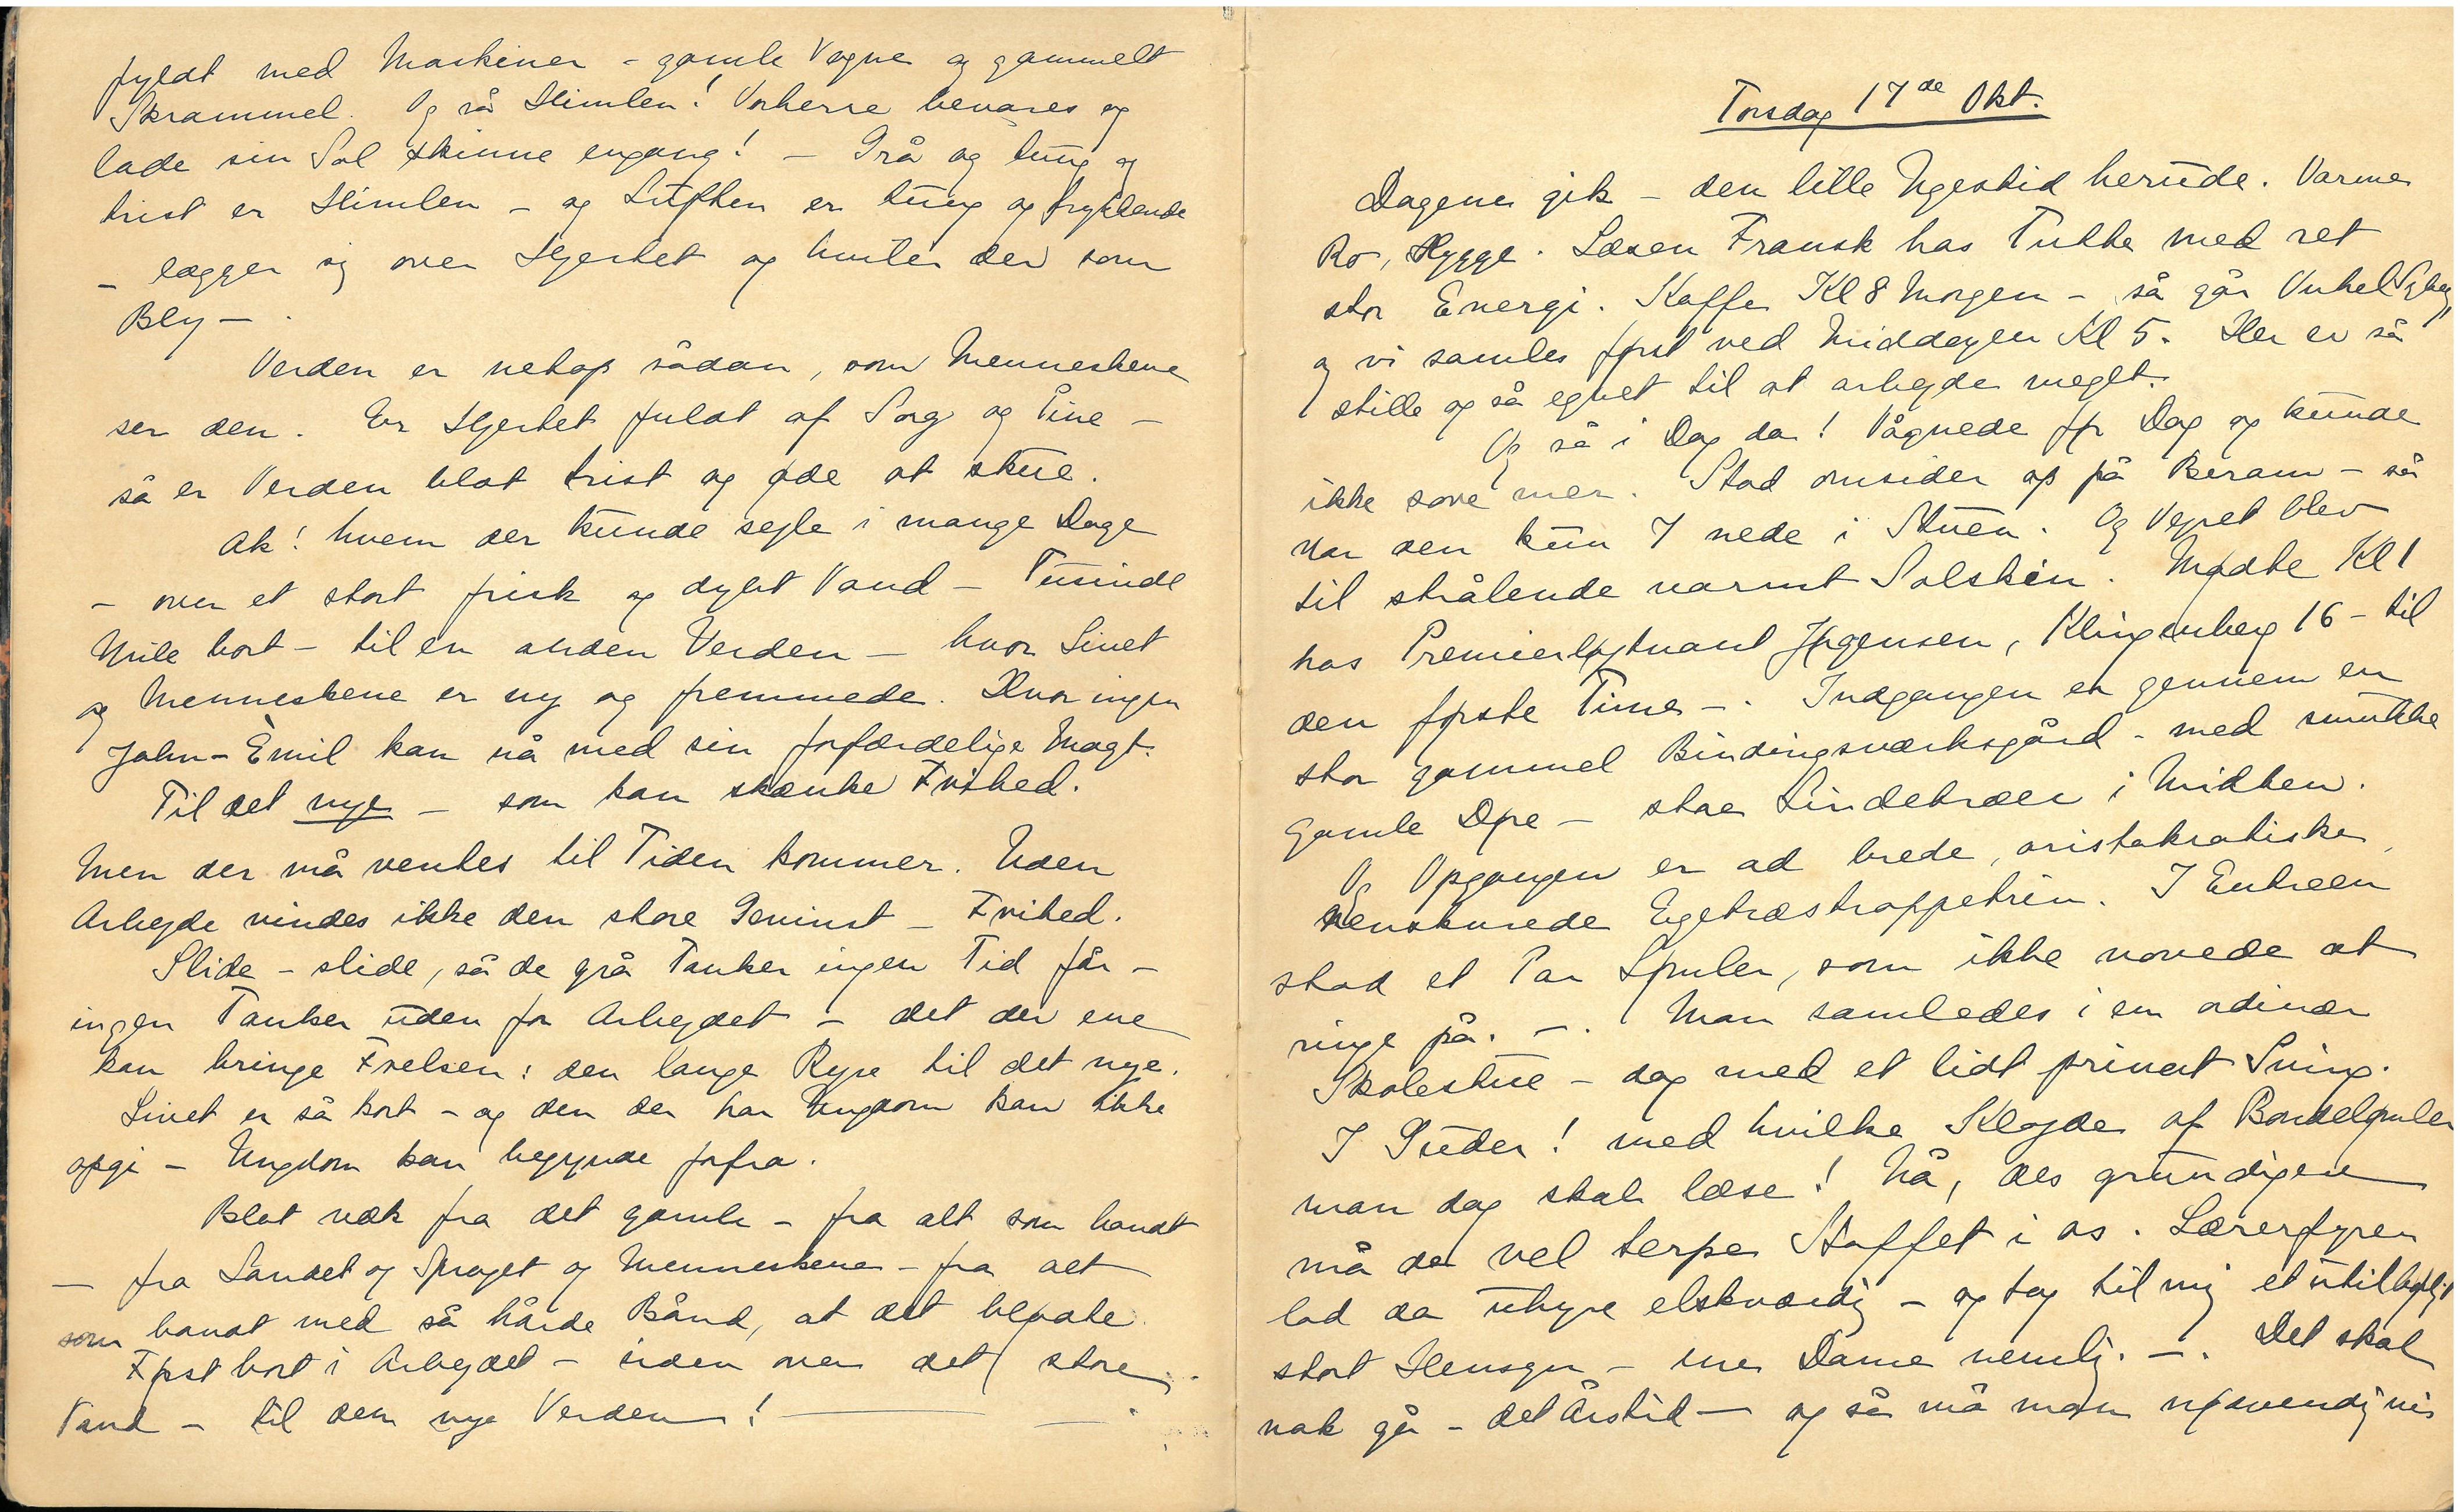 fyldt med Maskiner - gamle Vogne og gammelt
Skrammel. Og så Himlen! Vorherre bevares og
lade sin Sol skinne engang! - Grå og tung og
trist er Himlen - og Luften er tung og trykkende
- lægger sig over Hjertet og hviler der som
Bly -.
Verden er netop sådan, som Menneskene
ser den. Er Hjertet fuldt af Sorg og Pine -
så er Verden blot trist og øde at skue.
Ak! hvem der kunde sejle i mange Dage
- over et stort frisk og dybt Vand - Tusinde
Mile bort - til en anden Verden - hvor Livet
og Menneskene er ny og fremmede. Hvor ingen
John-Emil kan nå med sin forfærdelige Magt.
Til det nye - som kan skænke Frihed.
Men der må ventes til Tiden kommer. Uden
Arbejde vindes ikke den store Gevinst - Frihed.
Slide - slide, så de grå Tanker ingen Tid får -
ingen Tanker uden for Arbejdet - det der ene
kan bringe Frelsen: den lange Rejse til det nye.
Livet er så kort - og den der har Ungdom kan ikke
opgi - Ungdom kan begynde forfra.
Blot væk fra det gamle - fra alt som bandt
- fra Landet og Sproget og Menneskene - fra alt
som bandt med så hårde Bånd, at det blødte.
Først bort i Arbejdet - siden over det store
Vand - til den nye Verden! -
Torsdag 17de Okt.
Dagene gik - den lille Ugestid herude. Varme
Ro, Hygge. Læsen Fransk hos Tukke med ret
stor Energi. Kaffe Kl 8 Morgen - så går Onkel
og vi samles først ved Middagen Kl 5. Her er så
stille og så egnet til at arbejde meget.
Og så i Dag da! Vågnede før Dag og kunde
ikke sove mer. Stod omsider op på Beram - så
var den kun 7 nede i Stuen. Og Vejret blev
til strålende varmt Solskin. Mødte Kl 1
hos Premierløjtnant Jørgensen, Klingenberg 16 - til
den første Time -. Indgangen er gennem en
stor gammel Bindingsværksgård - med smukke
gamle Døre - store Lindetræer i Midten.
Og Opgangen er ad brede, aristokratiske,
renskurede Egetræstrappetrin. I Entreen
stod et Par Lømler, som ikke vovede at
ringe på. -. Man samledes i en ordinær
Skolestue - dog med et lidt privat Sving.
I Guder! med hvilke Klojder af Bondelømler
man dog skal læse! Nå, des grundigere
må de vel terpe Stoffet i os. Lærerfyren
lod da uhyre elskværdig - og tog til mig et utilbørligt
stort Hensyn - ene Dame nemlig. -. Det skal
nok gå - det Årstid - og så må man nødvendigvis